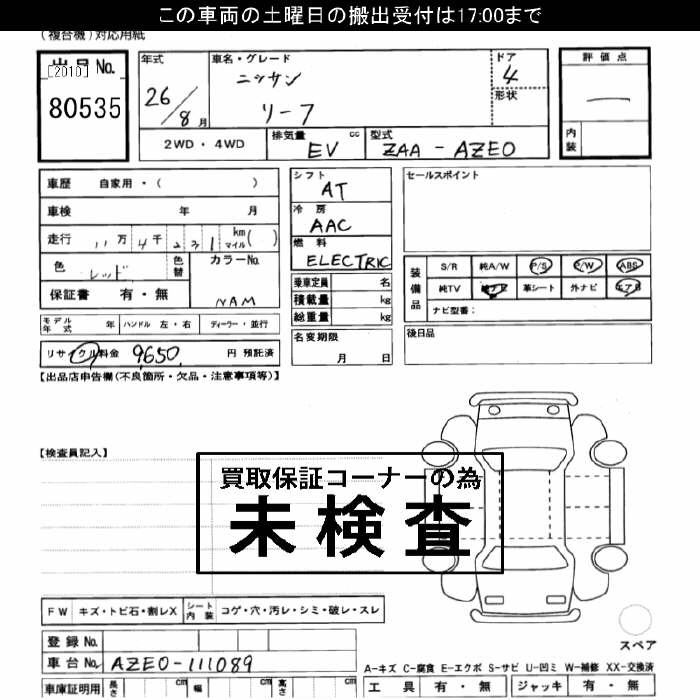 この車両の土曜日の搬出受付は17:00まで
(複合機)対応用紙
出品No.
[2010]
80535
年式
26/8月
車名・グレード
ニッサン
リーフ
ドア
4
形状
評価点
内装
2WD・4WD
排気量 cc
EV
型式
ZAA-AZEO
車歴 自家用・( )
車検 年 月
走行 11万4千231km マイル( )
色 レッド
色替
カラーNo.
NAM
保証書 有・無
シフト
AT
冷房
AAC
燃料
ELECTRIC
乗車定員 名
積載量 kg
総重量 kg
名変期限
月 日
セールスポイント
装備品
S/R 純A/W P/S P/W ABS
純TV 純ナビ 革シート 外ナビ エアB
ナビ型番:
後日品
モデル年式 年 ハンドル 左・右 ディーラー・並行
リサイクル料金 9,650 円 預託済
【出品店申告欄(不良箇所・欠品・注意事項等)】
【検査員記入】
買取保証コーナーの為
未検査
FW キズ・トビ石・割レX
シート内装 コゲ・穴・汚レ・シミ・破レ・スレ
登録No.
車台No. AZEO-111089
車庫証明用 長さ cm 幅 cm 高さ cm
スペア
A-キズ C-腐食 E-エクボ S-サビ U-凹ミ W-補修 XX-交換済
工具 有・無 ジャッキ 有・無